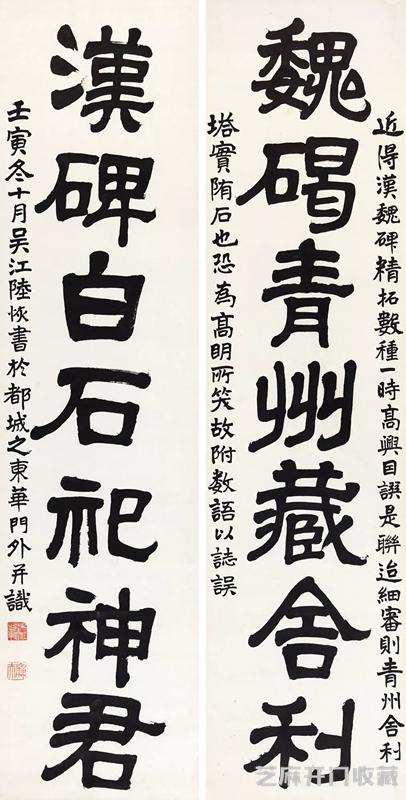 近得漢魏碑精拓數種一時高興目譔是聯迨細審則青州舍利
魏碣青州藏舍利
塔實隋石也恐為高明所笑故附数語以誌誤
漢碑白石祀神君
壬寅冬十月吴江陸恢書於都城之東華門外并識
芝麻开门收藏